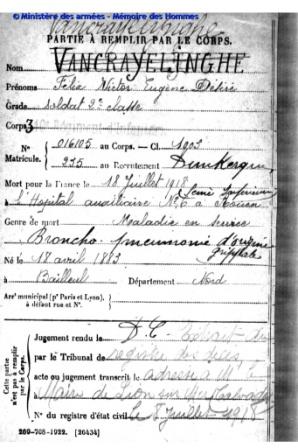 © Ministère des armées - Mémoire des Hommes
PARTIE À REMPLIR PAR LE CORPS.
Nom VANCRAYELINGHE
Prénoms Félix Victor Eugène Désiré
Grade soldat 2e classe
Corps 3
N° 016105 au Corps. — Cl. 1903
Matricule. 235 au Recrutement Dunkerque
Mort pour la France le 18 Juillet 1918
à L'Hopital auxiliaire N° 6 à Rouen
Seine Inférieure
Genre de mort Maladie en service
Broncho-pneumonie d'origine
grippale
Né le 18 avril 1883
à Bailleul Département Nord
Arrt municipal (pr Paris et Lyon),
à défaut rue et N°.
Cette partie
n'est pas à remplir
par le Corps.
Jugement rendu le D.C. Extrait du
par le Tribunal de registre des décès
acte ou jugement transcrit le adressé à Mr le
Maire de Lion sur Mer Calvados
N° du registre d'état civil le Juillet 1918
269-708-1922. [26434]